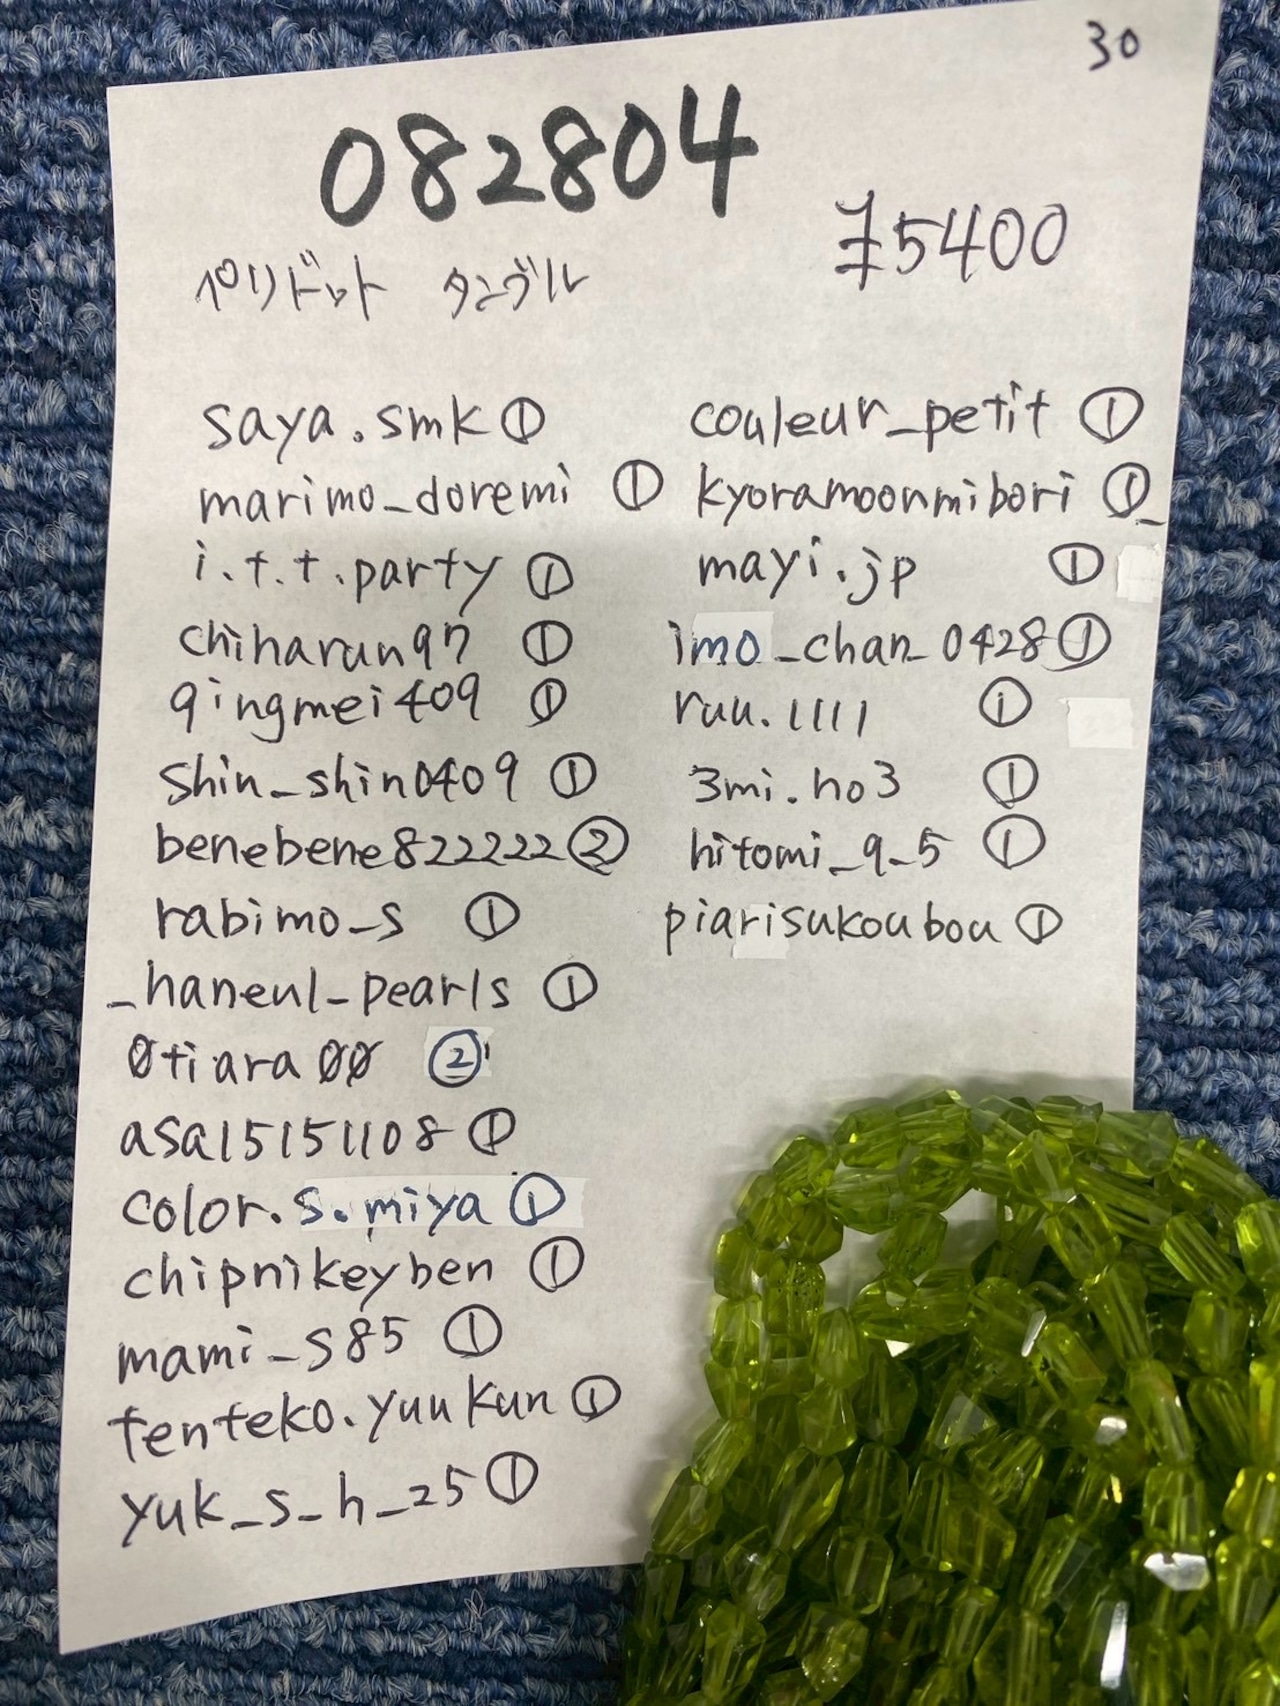 30
082804
¥5400
ペリドット タンブル
saya.smk ①
marimo_doremi ①
i.t.t.party ①
chiharun97 ①
qingmei409 ①
shin_shin0409 ①
benebene822222 ②
rabimo_s ①
_haneul_pearls ①
0tiara00 ②
asa15151108 ①
color.s.miya ①
chipnikeyben ①
mami_s85 ①
tenteko.yuukun ①
yuk_s_h_25 ①
couleur_petit ①
kyoramoonmibori ①_
mayi.jp ①
imo_chan_0428 ①
ruu.1111 ①
3mi.ho3 ①
hitomi_9_5 ①
piarisukoubou ①